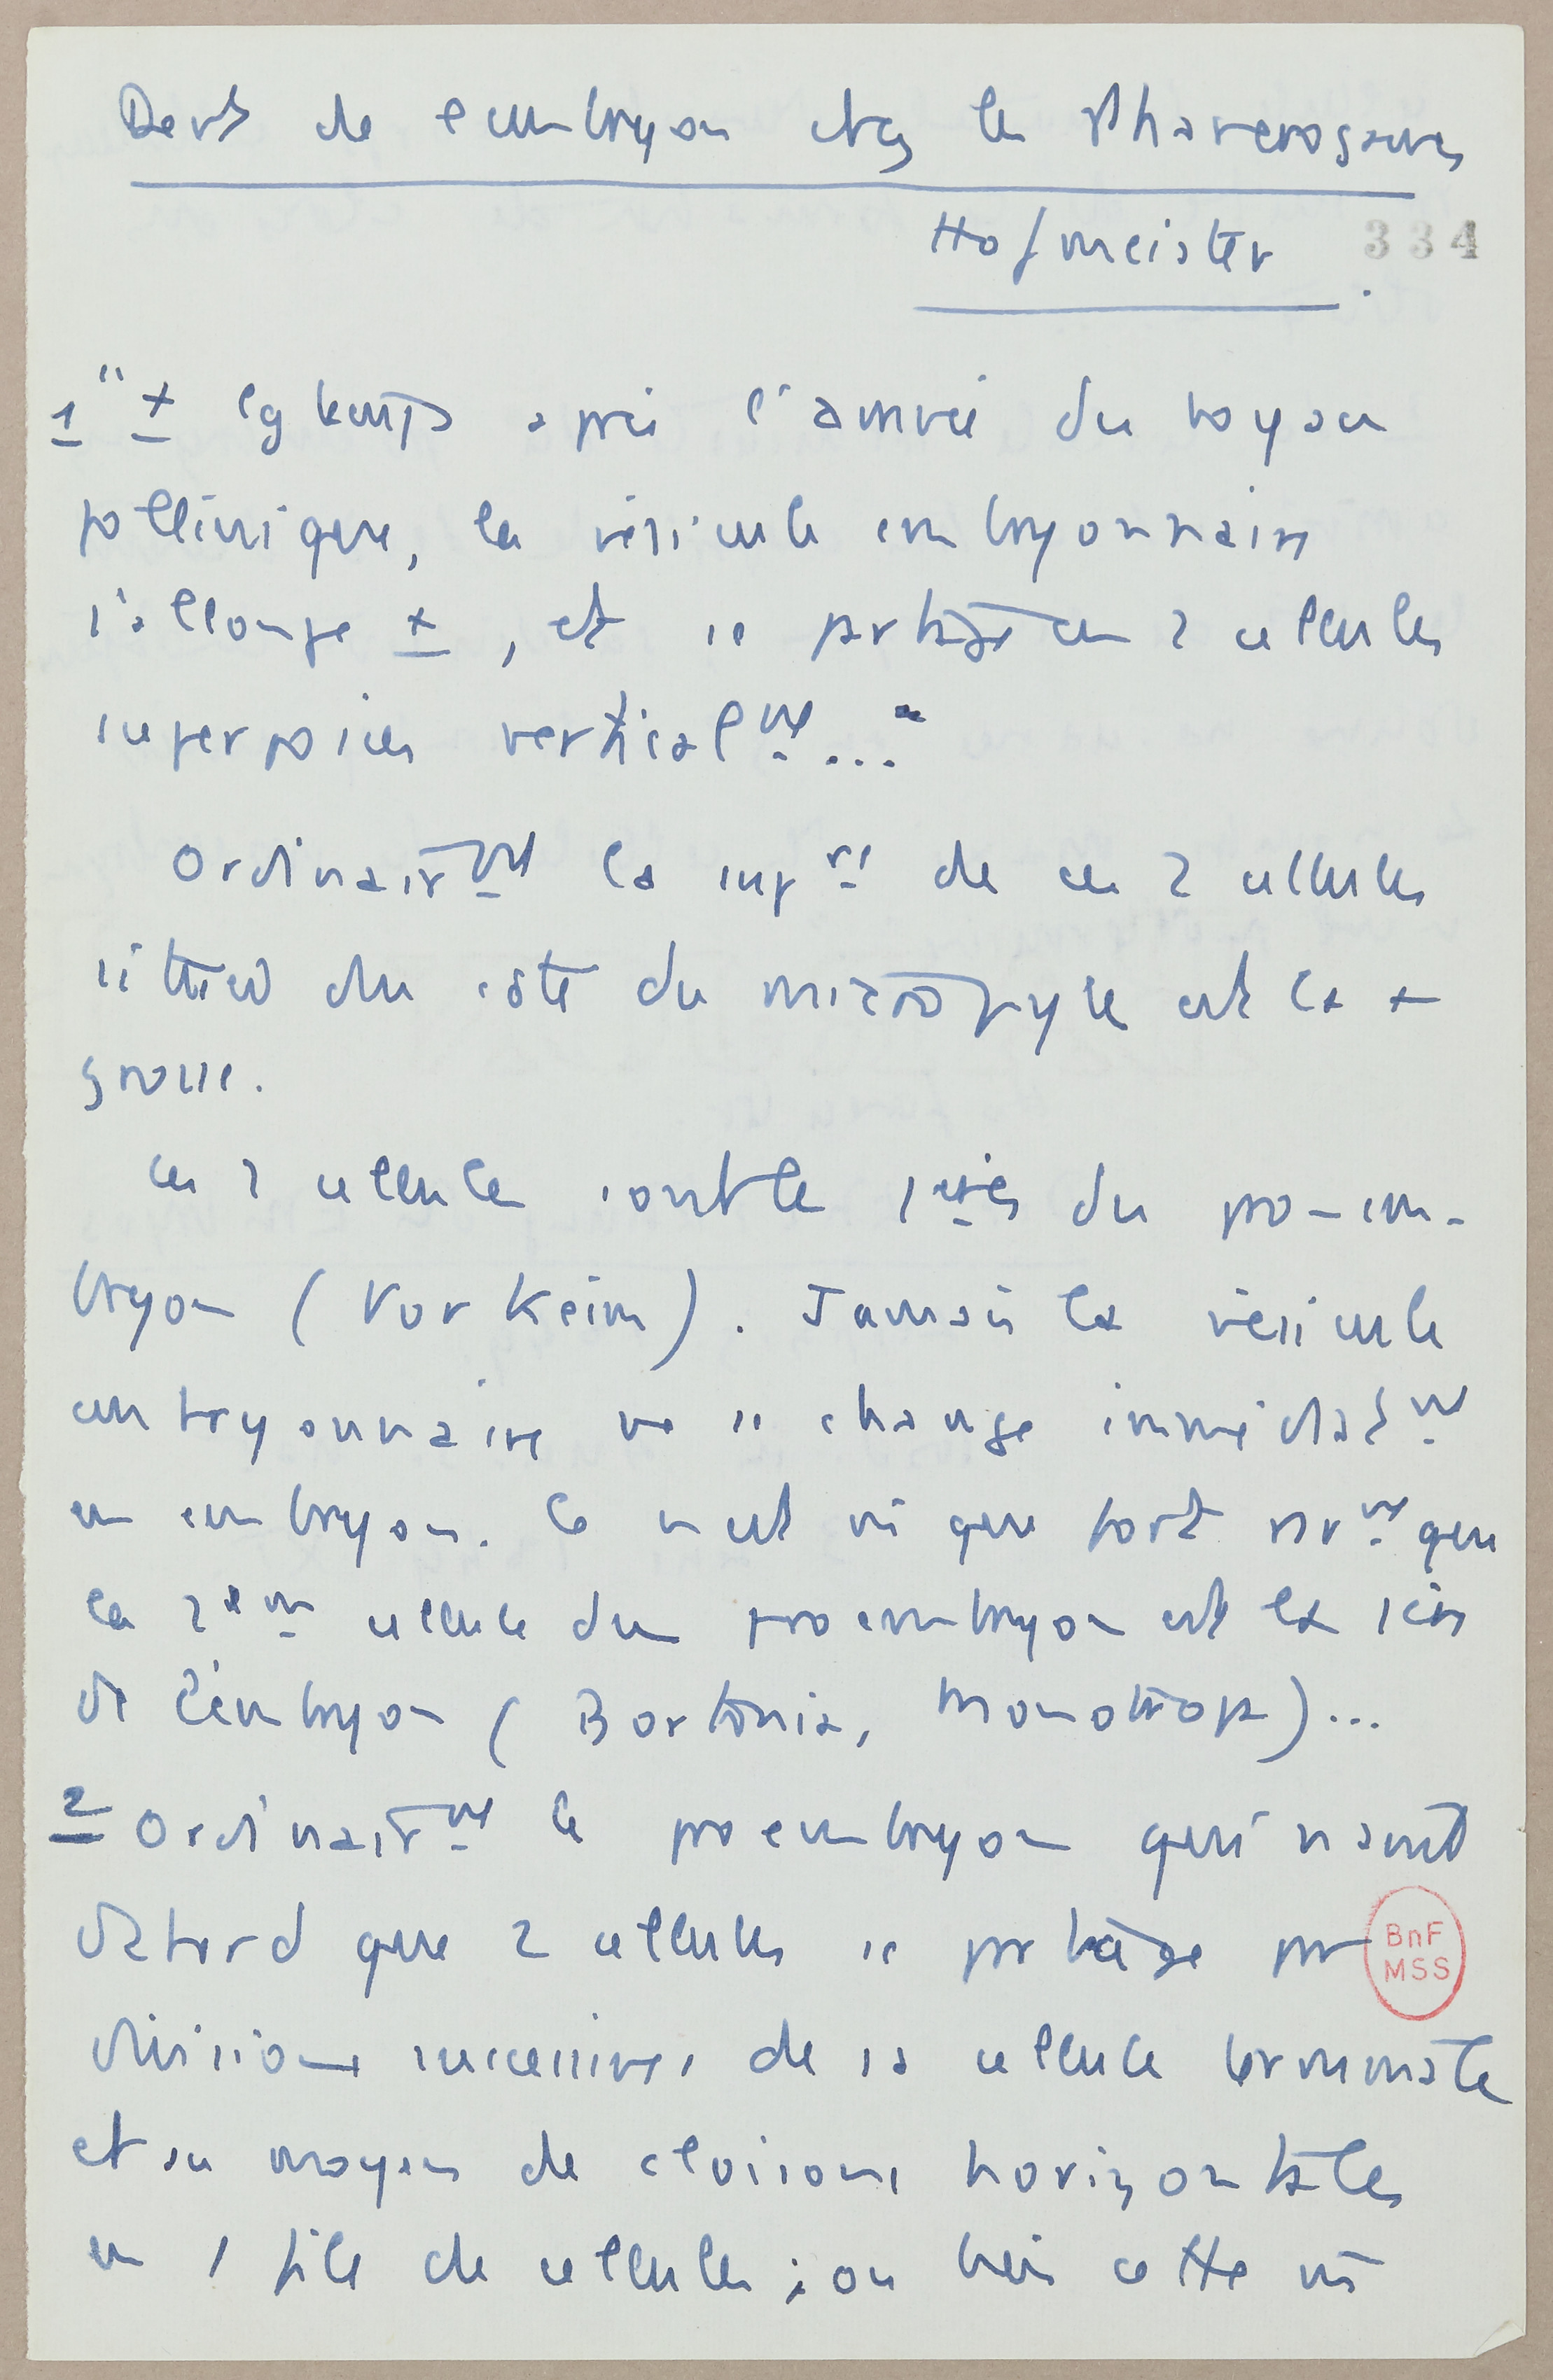 Devt de l'embryon chez les Phanerogames
Hofmeister.
334
1" ± lg temps après l'arrivée du boyau
pollinique, la vésicule embryonnaire
s'allonge ±, et se partage en 2 cellules
superposées verticalmt..."
Ordinairmt la supre de ces 2 cellules
située du côté du micropyle est la +
grosse.
Ces 2 cellules sont les 1eres du pro-em-
bryon (Vorkeim). Jamais la vésicule
embryonnaire ne se change immédiatmt
en embryon. Ce n'est mê que fort rarmt que
la 2eme cellule du proembryon est la 1ère
de l'embryon (Bartonia, Monotropa)...
2 Ordinairmt le proembryon qui n'avait
d'abord que 2 cellules se partage par
BnF
MSS
divisions successives de sa cellule terminale
et au moyen de cloisons horizontales
en 1 file de cellules ; ou bien cette mê